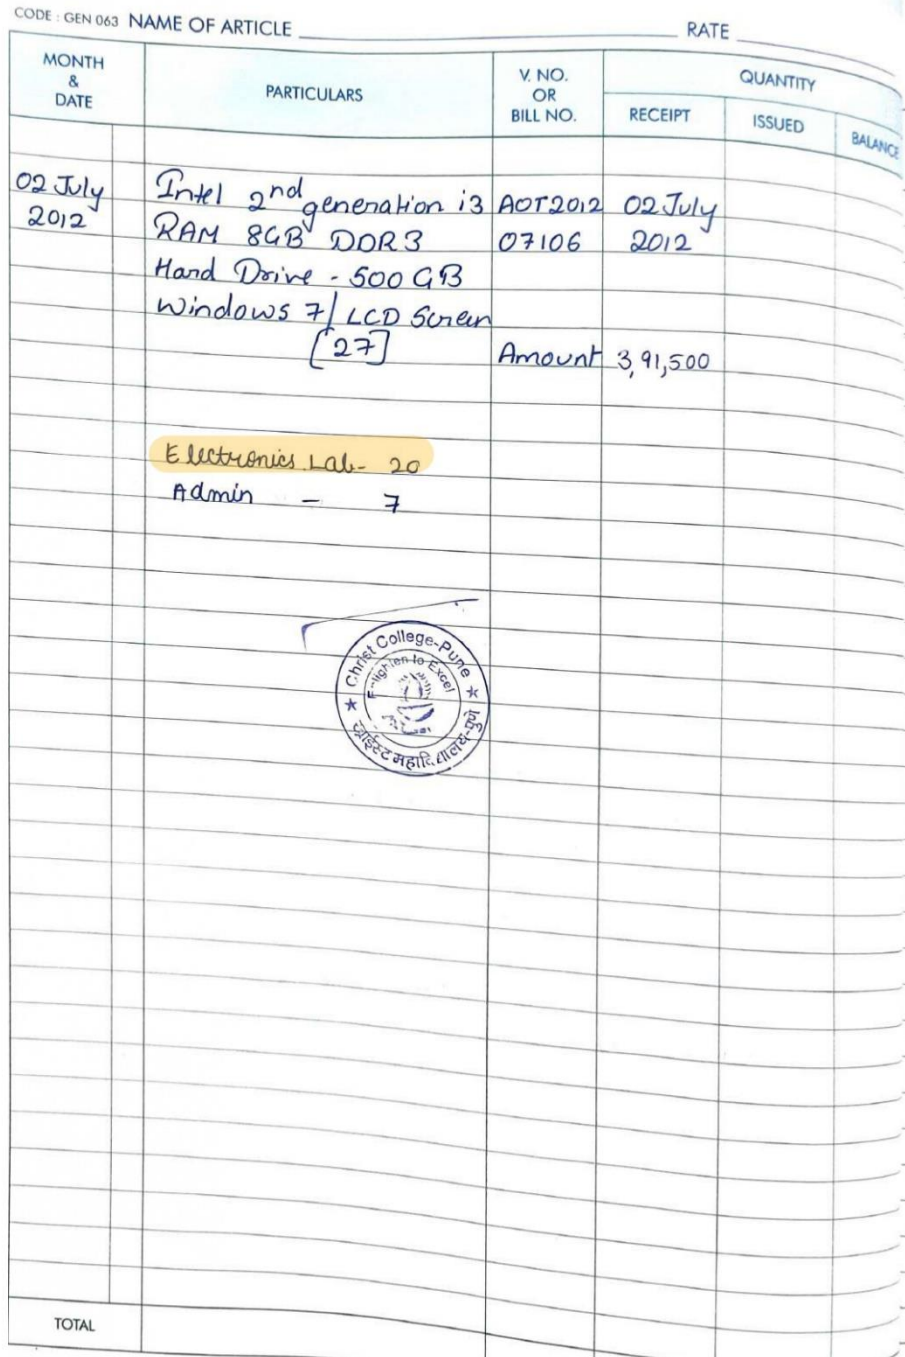 CODE : GEN 063 NAME OF ARTICLE RATE
MONTH & DATE PARTICULARS V. NO. OR BILL NO. QUANTITY
RECEIPT ISSUED BALANCE
02 July Intel 2nd generation i3 AOT2012 02 July
2012 RAM 8GB DDR3 07106 2012
Hard Drive - 500 GB
Windows 7/ LCD Screen
[27] Amount 3,91,500
Electronics Lab- 20
Admin - 7
Christ College-Pune
Enlighten to Excel
ख्राईस्ट महाविद्यालय-पुणे
TOTAL